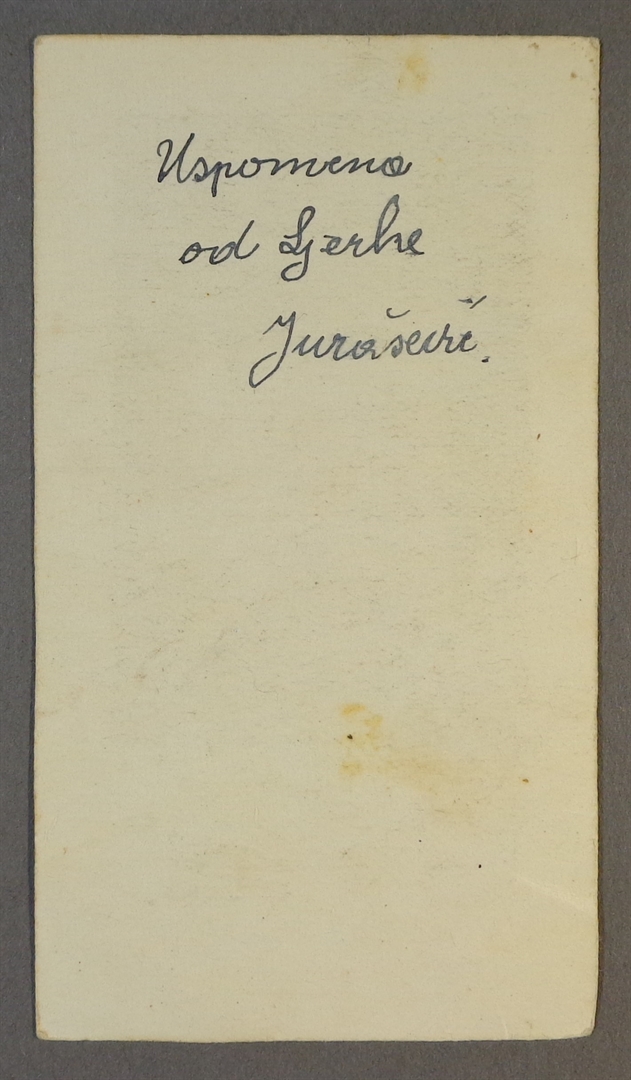 Uspomena
od Ljerke
Jurašević.